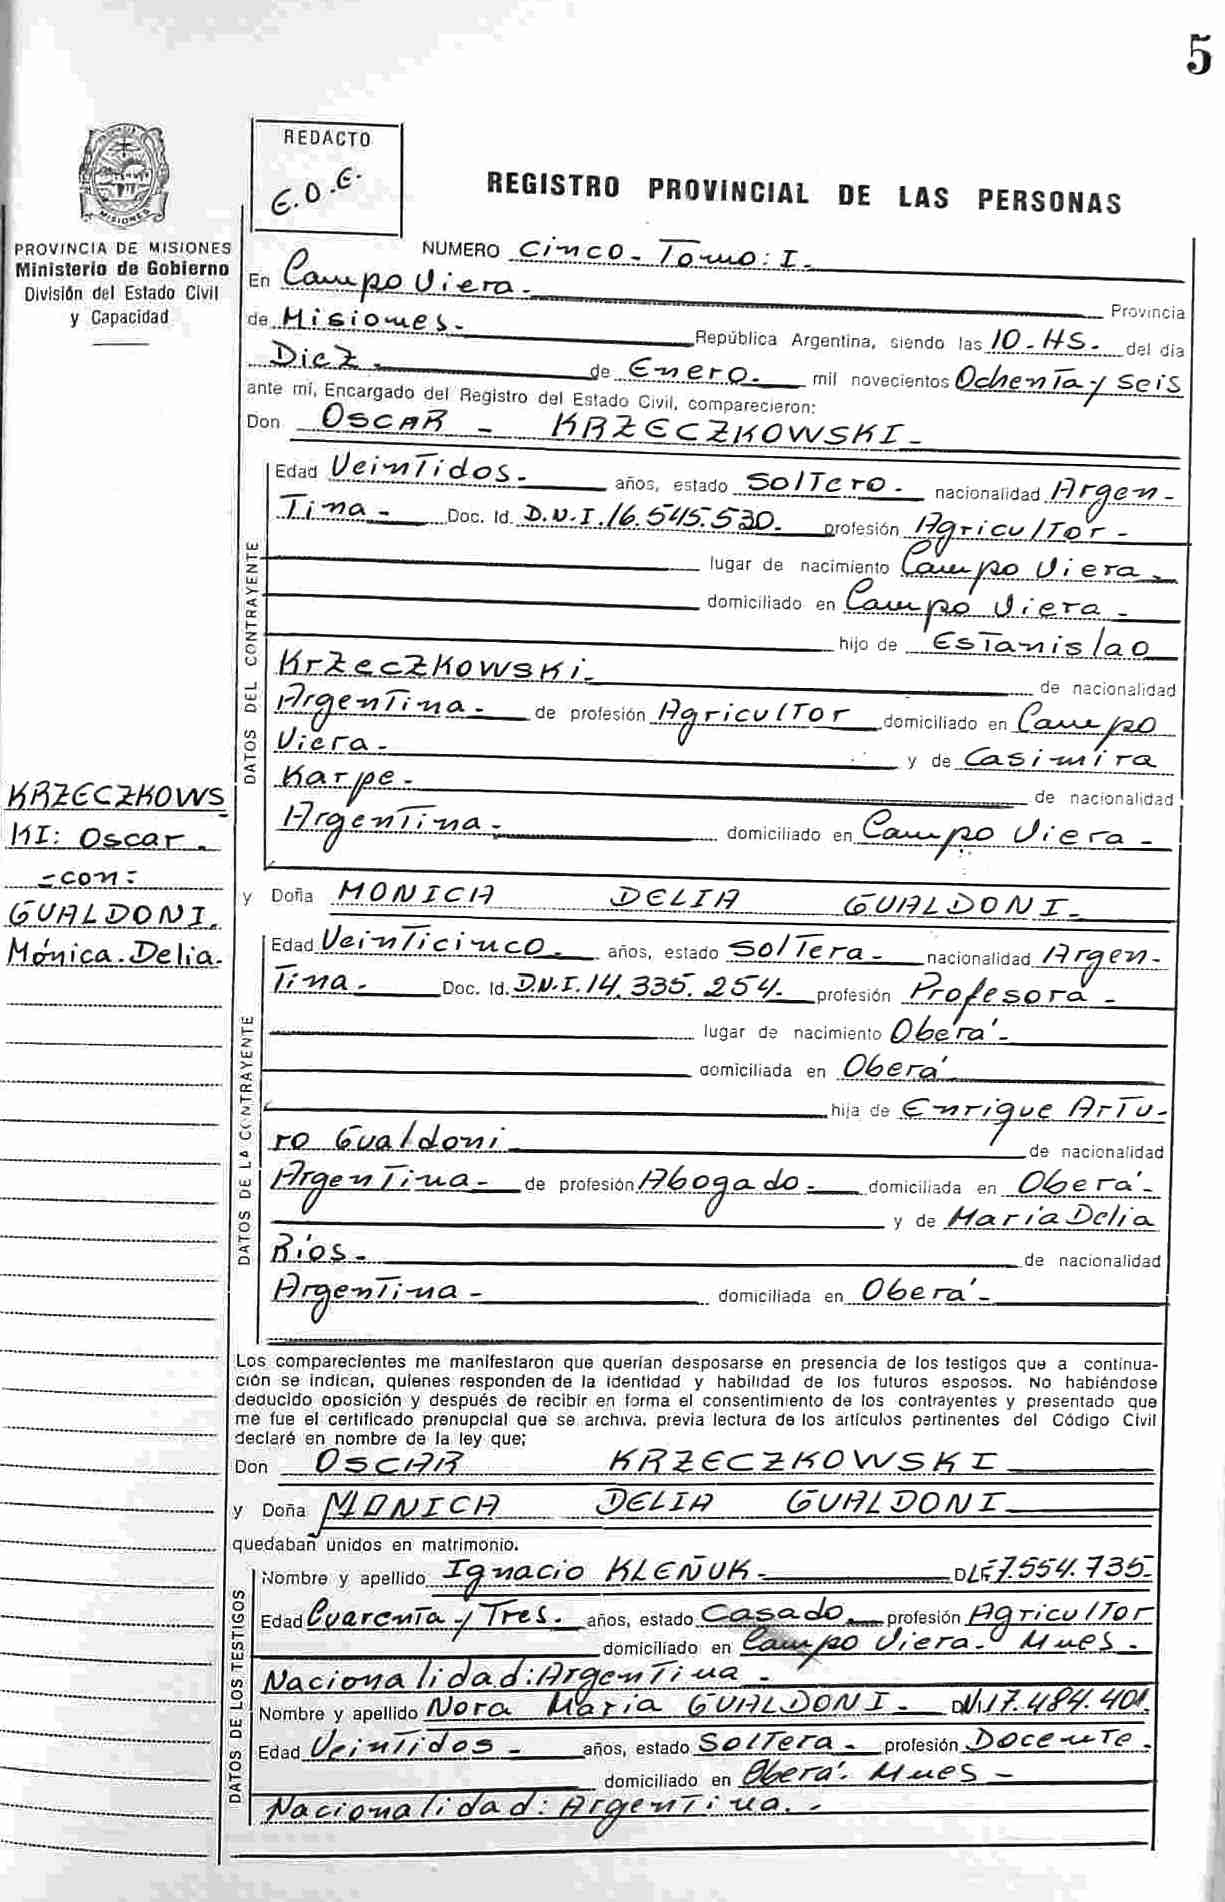 5
REDACTO
E.O.E.
REGISTRO PROVINCIAL DE LAS PERSONAS
PROVINCIA DE MISIONES
Ministerio de Gobierno
División del Estado Civil
y Capacidad
NUMERO Cinco - Tomo: I.-
En Campo Viera.- Provincia
de Misiones.- República Argentina, siendo las 10.HS. del día
Diez. de Enero. mil novecientos Ochenta y Seis
ante mí, Encargado del Registro del Estado Civil, comparecieron:
Don OSCAR - KRZECZKOWSKI-
DATOS DEL CONTRAYENTE
Edad Veintidos.- años, estado Soltero. nacionalidad Argen-
Tina - Doc. Id. D.N.I.16.545.530. profesión Agricultor -
lugar de nacimiento Campo Viera -
domiciliado en Campo Viera -
hijo de Estanislao
Krzeczkowski.- de nacionalidad
Argentina - de profesión Agricultor domiciliado en Campo
Viera - y de Casimira
Karpe - de nacionalidad
Argentina - domiciliado en Campo Viera -
KRZECZKOWS-
KI: Oscar.
- con -
GUALDONI.
Mónica Delia.
y Doña MONICA DELIA GUALDONI-
DATOS DE LA CONTRAYENTE
Edad Veinticinco - años, estado Soltera - nacionalidad Argen-
Tina. Doc. Id. D.N.I.14.335.254. profesión Profesora -
lugar de nacimiento Oberá -
domiciliada en Oberá
hija de Enrique Artu-
ro Gualdoni de nacionalidad
Argentina - de profesión Abogado - domiciliada en Oberá -
y de María Delia
Ríos - de nacionalidad
Argentina - domiciliada en Oberá -
Los comparecientes me manifestaron que querían desposarse en presencia de los testigos que a continua-
ción se indican, quienes responden de la identidad y habilidad de los futuros esposos. No habiéndose
deducido oposición y después de recibir en forma el consentimiento de los contrayentes y presentado que
me fue el certificado prenupcial que se archiva, previa lectura de los artículos pertinentes del Código Civil
declaré en nombre de la ley que;
Don OSCAR KRZECZKOWSKI
y Doña MONICA DELIA GUALDONI
quedaban unidos en matrimonio.
DATOS DE LOS TESTIGOS
Nombre y apellido Ignacio KLEÑUK - DLE7.554.735-
Edad Cuarenta y Tres. años, estado Casado. profesión Agricultor
domiciliado en Campo Viera - Mnes -
Nacionalidad: Argentina -
Nombre y apellido Nora María GUALDONI - DNI.17.484.401.
Edad Veintidos - años, estado Soltera - profesión Docente -
domiciliado en Oberá. Mnes -
Nacionalidad: Argentina. -